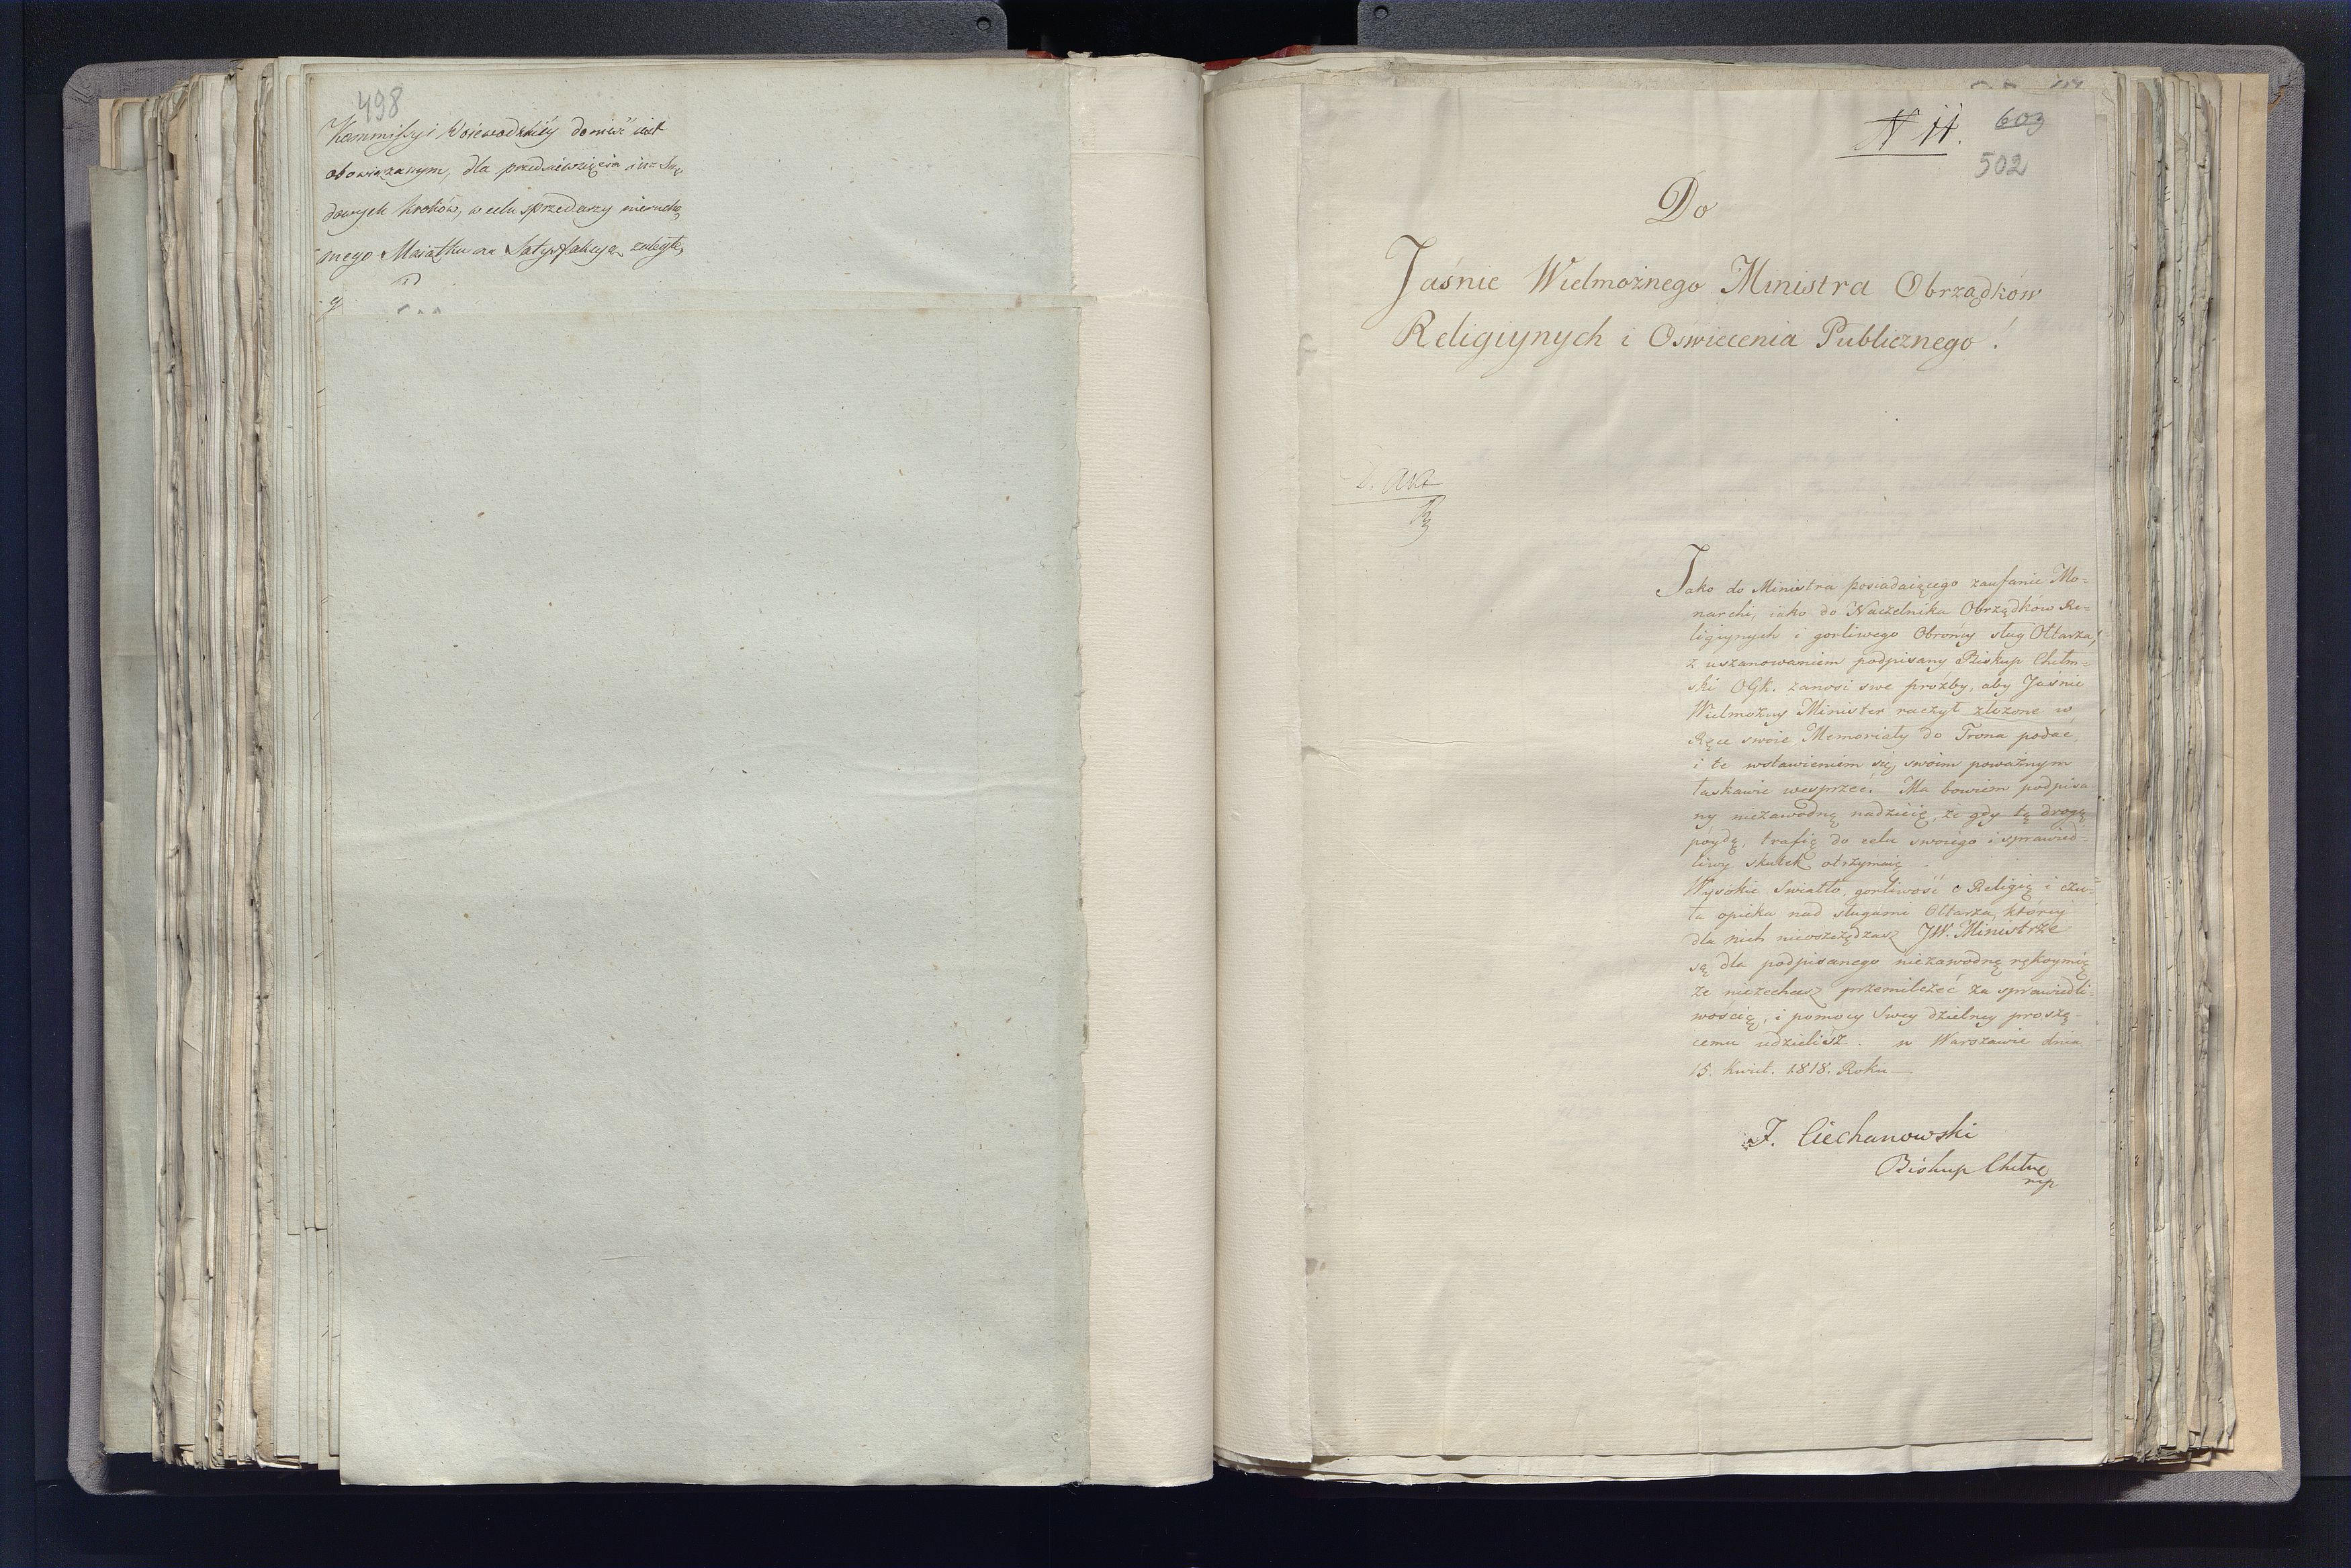 498
Kommissyi Woiewodzkiey donieść iest
obowiązanym, dla przedsiewzięcia
dowych kroków, w celu sprzedarzy nierucho,
mego Maiątku na Satysfakcyą zaległe,
N 11.
603
502
Do
Jaśnie Wielmożnego Ministra Obrządków
Religiynych i Oświecenia Publicznego!
Jako do Ministra posiadaiącego zaufanie Mo=
narchi, iako do Naczelnika Obrządków Re=
ligiynych i gorliwego Obrońcy sług Ołtarza,
z uszanowaniem podpisany Biskup Chełm=
ski OGk. zanosi swe proźby, aby Jaśnie
Wielmożny Minister raczył złożone w
Ręce swoie Memoriały do Trona podać,
i te wstawieniem się swoim poważnym
łaskawie wesprzeć. Ma bowiem podpisa
ny niezawodną nadzieię, że gdy tą drogą
póydą, trafią do celu swoiego i sprawied=
liwy skutek otrzymaią.
Wysokie światło, gorliwość o Religią i czu=
ła opieka nad sługami Ołtarza, którey
dla nich nieoszczędzasz JW. Ministrze
są dla podpisanego niezawodną rękoymią
że niezechcesz przemilczeć za sprawiedli=
wością, i pomocy Swey dzielney proszą=
cemu udzielisz. w Warszawie dnia
15. Kwiet. 1818. Roku
F. Ciechanowski
Biskup Chełm
mp